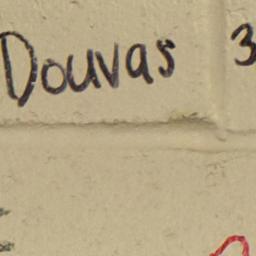 Douvas 3